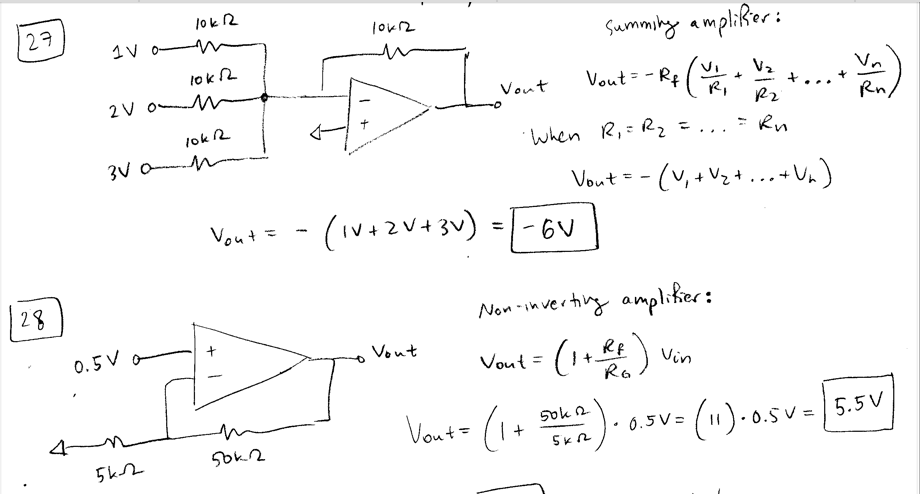 27
10kΩ
10kΩ
1V
10kΩ
2V
10kΩ
3V
−
+
Vout
Summing amplifier:
Vout = -Rf (V1/R1 + V2/R2 + ... + Vn/Rn)
When R1 = R2 = ... = Rn
Vout = - (V1 + V2 + ... + Vn)
Vout = - (1V + 2V + 3V) = -6V
28
0.5V
+
−
Vout
5kΩ
50kΩ
Non-inverting amplifier:
Vout = (1 + Rf/RG) Vin
Vout = (1 + 50kΩ/5kΩ) · 0.5V = (11) · 0.5V = 5.5V